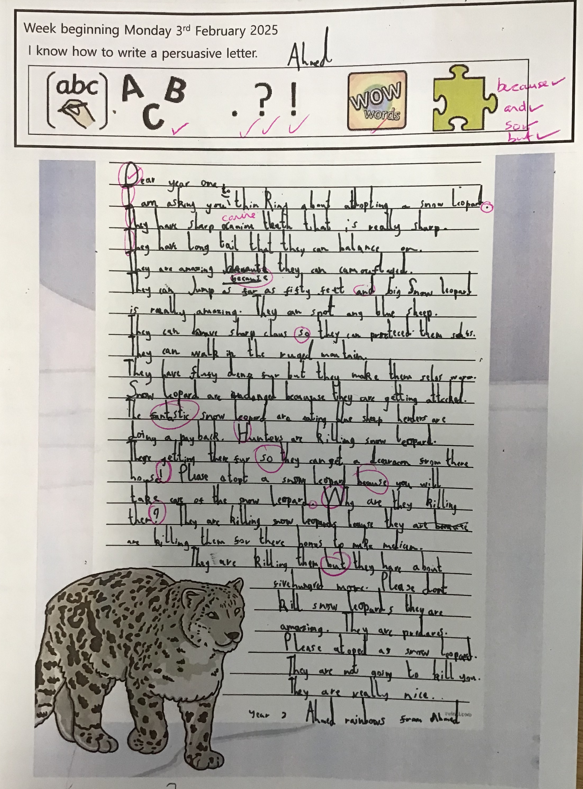 Week beginning Monday 3rd February 2025
I know how to write a persuasive letter. Ahmed
abc A B C . ? ! WOW words because and so but
Dear year one
I am asking you to thin King about adopting a snow leopard.
canine
They have sharp teeth that is really sharp.
They have long tail that they can balance on.
They are amazing because they can camouflaged.
because
They can Jump as far as fifty feet and big Snow leopard
is really amazing. They can spot any blue sheep.
They can have sharp claws so they can proteced them selfs.
They can walk in the ruged mantain.
They have flufy fur but they make them selas warm.
Snow leopard are because they are getting attacked.
The fantastic snow leopard are eating blue sheep herders are
doing a payback. Hunters are Killing snow leopard.
getting there fur so they can get a from there
house! Please atopt a snow leopard becuse you will
take care of the snow leopard. Why are they killing
them? They are killing snow leopards they are
are killing them for there bones to make medicine.
They are Killing them but they have about
more. Please dont
Kill snow leopards they are
amazing. They are
Please atoped as snow leopard.
They are not going to kill you.
They are really nice..
Year 2 Ahmed rainbows from Ahmed